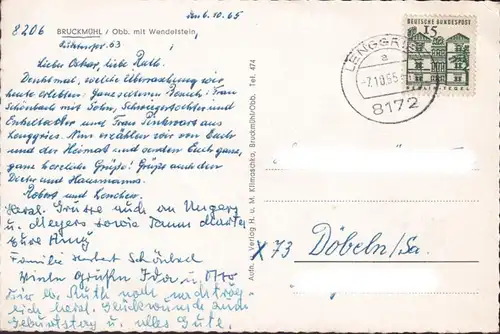 8206
BRUCKMÜHL / Obb. mit Wendelstein,
den 6.10.65
63
Lieber Oskar, liebe Ruth.
Denkt mal, welche Überraschung wir
heute erlebten. Ganz seltenen Besuch: Frau
Schönbach mit Sohn, Schwiegertochter und
Enkeltochter und Frau aus
Lenggries. Nun erzählen wir von Euch
und der Heimat und senden Euch ganz,
ganz herzliche Grüße! Grüße auch an
und Hausmanns.
Robert und Lenchen.
Herzl. Grüsse auch an Ungers
u. Meyers sowie Tante Martel
Eure Anny
Familie Herbert Schönbach
Weiter grüßen Ida u. Otto
Für die Ruth noch nachträg-
lich herzl. Glückwünsche zum
Geburtstag u. alles Gute.
Anh. Verlag H. u. M. Klimaschka, Bruckmühl/Obb. Tel. 474
LENGGRIES
a
-7.10.65-
8172
DEUTSCHE BUNDESPOST
15
BERLIN-TEGEL
X 73 Döbeln/Sa.